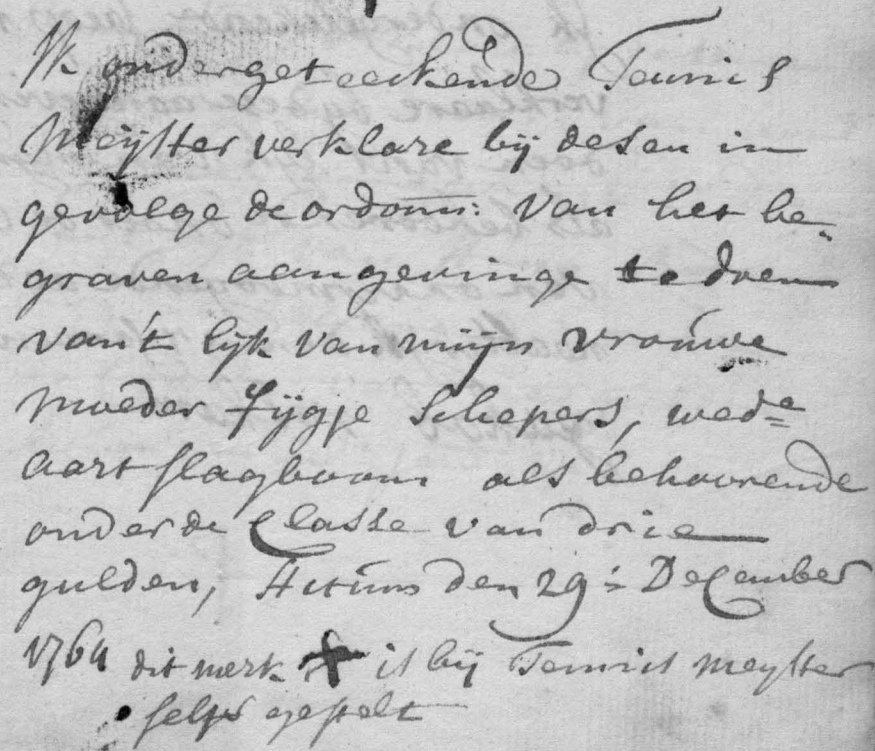 Ik ondergeteeckende Teunis
Meijster verklare bij desen in
gevolge de ordonn: van het be=
graven aangevinge te doen
van't lijk van mijn vrouwe
moeder fijgje Schepers, wed=e
aart slagboom als behoorende
onder de Classe van drie
gulden, Actum den 29:s December
1764 dit merk X is bij Teunis meyster
selfs gestelt